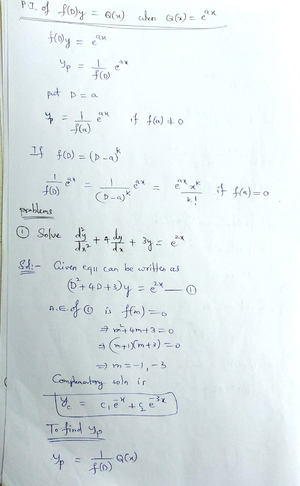 P.I. of f(D)y = Q(x) when Q(x) = e^{ax}
f(D)y = e^{ax}
y_p = 1/f(D) e^{ax}
put D = a
y_p = 1/f(a) e^{ax} if f(a) ≠ 0
If f(D) = (D-a)^k
1/f(D) e^{ax} = 1/(D-a)^k e^{ax} = e^{ax} x^k / k! if f(a) = 0
problems
① Solve d²y/dx² + 4 dy/dx + 3y = e^{2x}
Sol:- Given equ can be written as
(D² + 4D + 3)y = e^{2x} — ①
A.E of ① is f(m) = 0
⇒ m² + 4m + 3 = 0
⇒ (m+1)(m+3) = 0
⇒ m = -1, -3
Complementary soln is
y_c = c₁e^{-x} + c₂e^{-3x}
To find y_p
y_p = 1/f(D) Q(x)